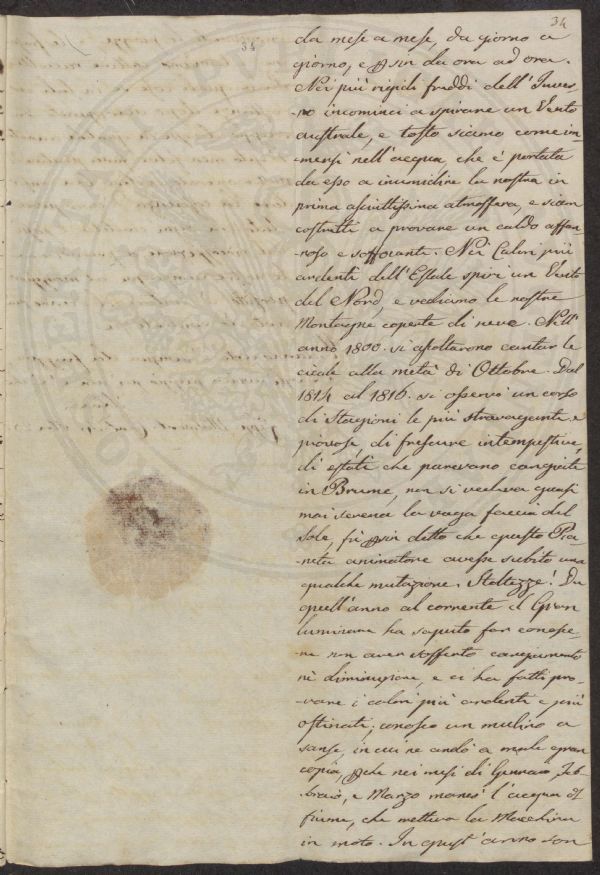 34
34
da mese a mese, da giorno a
giorno, e per sin da ora ad ora.
Nei più rigidi freddi dell'Inver-
no incominci a spirare un Vento
australe, e tosto siamo come im-
mersi nell'acqua, che è portata
da esso a inumidire la nostra in
prima asciuttissima atmosfera, e siam
costretti a provare un caldo affan-
noso e soffocante. Nei Calori più
ardenti dell'Estate spiri un Vento
del Nord, e vediamo le nostre
Montagne coperte di neve. Nell'
anno 1800. si ascoltarono cantar le
cicale alla metà di Ottobre. Dal
1814 al 1816. si osservò un corso
di Stagioni le più stravaganti, e
piovose, di frescure intempestive,
di estati che parevano cangiate
in Brume, non si vedeva quasi
mai serena la vaga faccia del
Sole, fù per sin detto che questo Pia-
neta animatore avesse subito una
qualche mutazione. Stoltezze! Da
quell'anno al corrente il Gran
luminare ha saputo far conosce-
re non aver sofferto cangiamento
nè diminuzione, e ci ha fatti pro-
vare i calori più ardenti e più
ostinati; conosco un mulino a
sanse, in cui ne andò a male gran
copia, perche nei mesi di Gennaro, Feb-
braio, e Marzo mancò l'acqua di
fiume, che metteva la Macchina
in moto. In quest'anno son